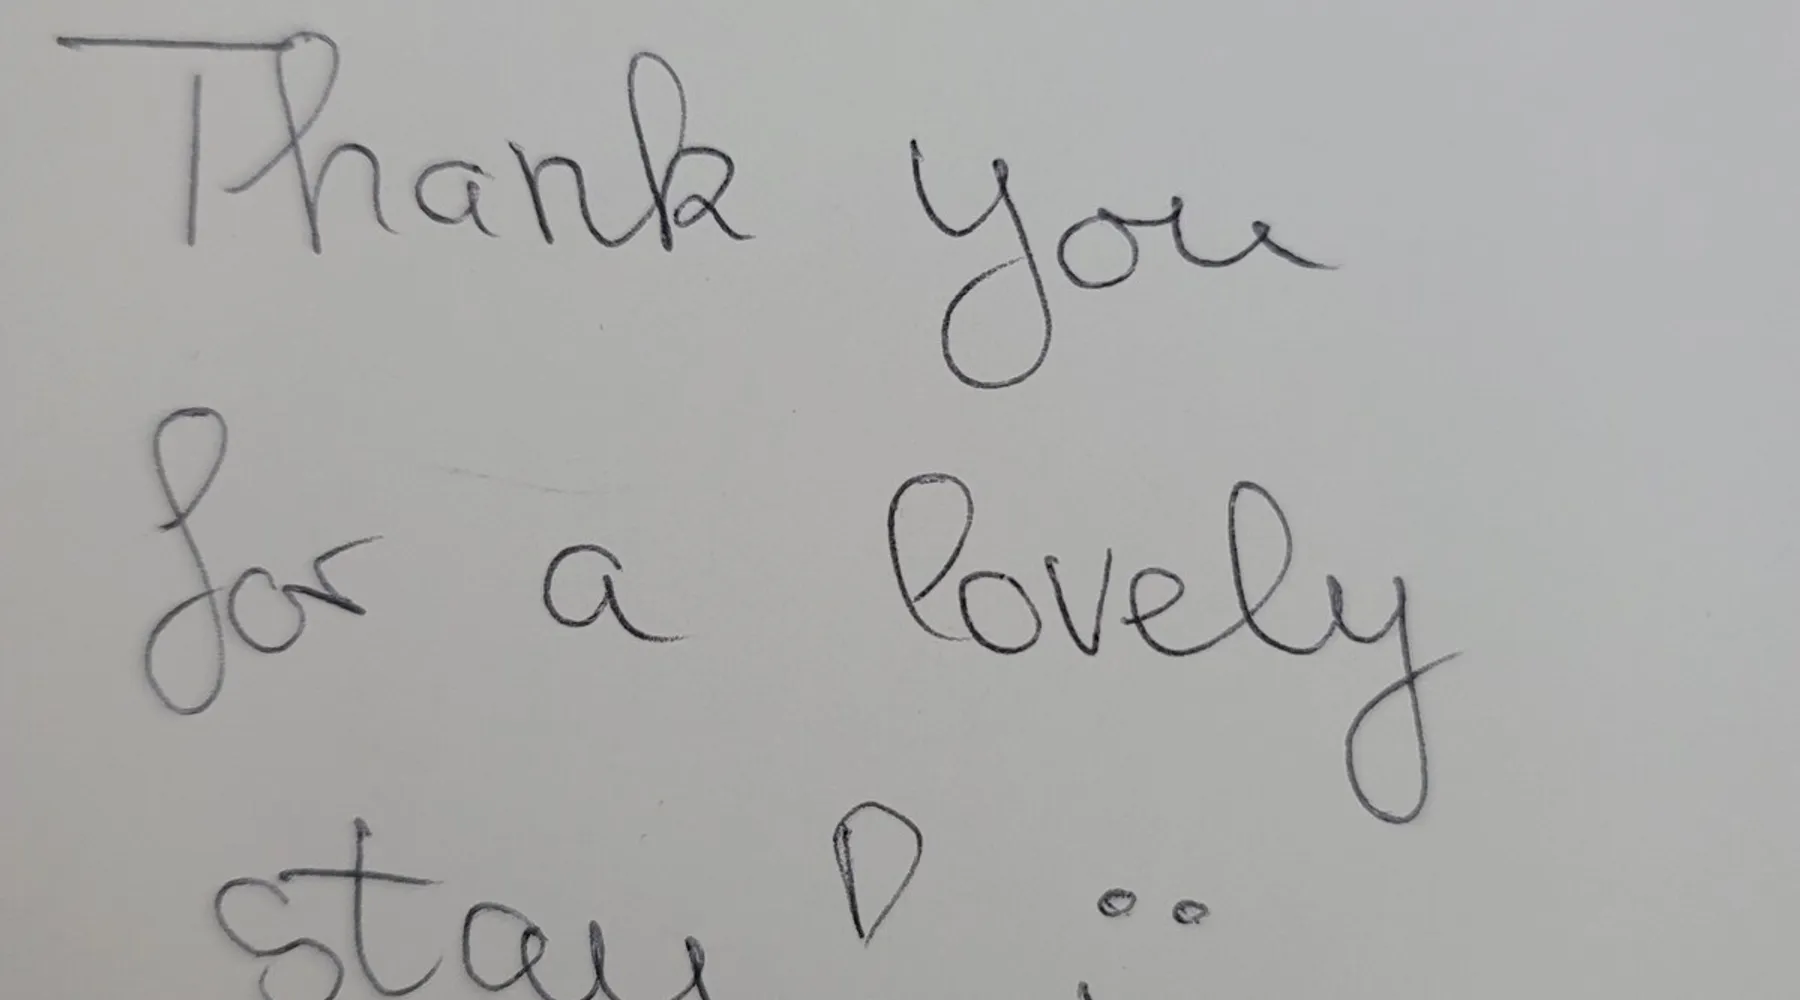 Thank you
for a lovely
stay!